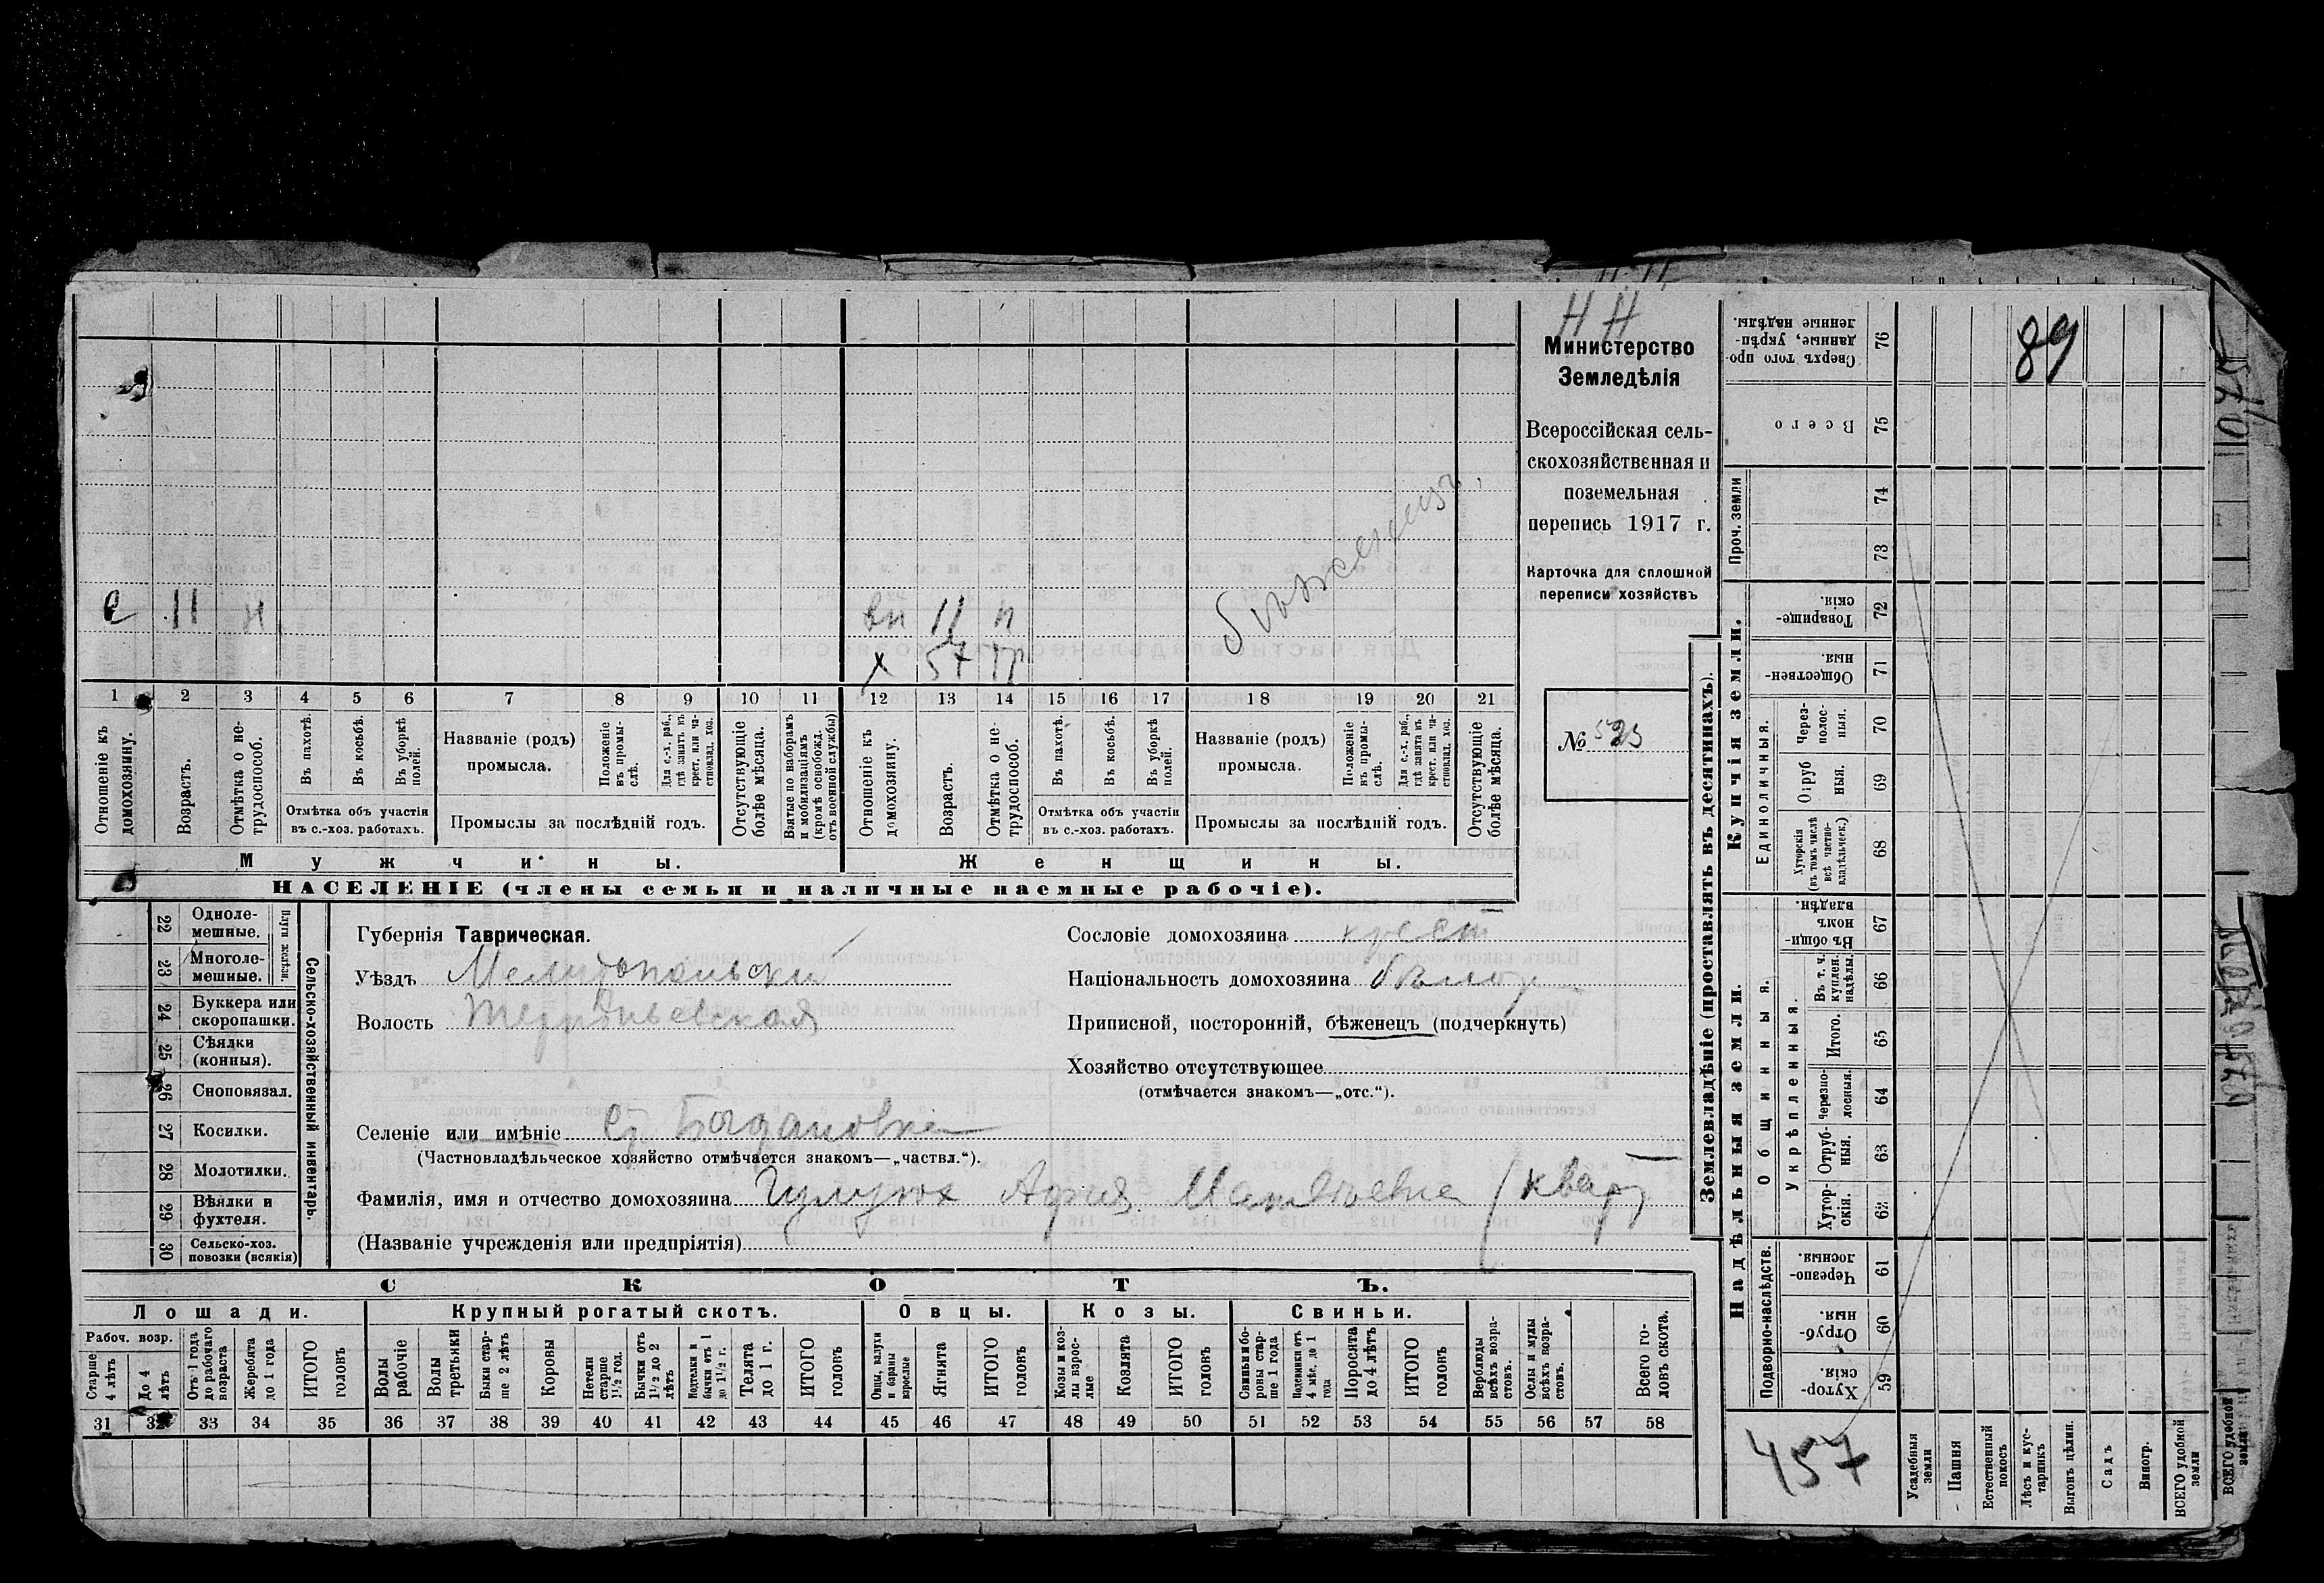 Н Н
Министерство
Земледѣлія
Всероссійская сель-
скохозяйственная и
поземельная
перепись 1917 г.
Карточка для сплошной
переписи хозяйствъ
№ 523
с 11 н
вн 11 н
х 57 тр
1 2 3 4 5 6 7 8 9 10 11 12 13 14 15 16 17 18 19 20 21
Отношеніе къ домохозяину.
Возрастъ.
Отмѣтка о не-трудоспособ.
Въ пахотѣ.
Въ косьбѣ.
Въ уборкѣ полей.
Отмѣтка объ участіи
въ с.-хоз. работахъ.
Названіе (родъ)
промысла.
Положеніе въ промы-слѣ.
Для с.-х. раб., гдѣ занятъ въ крест. или ча-стновлад. хоз.
Промыслы за послѣдній годъ.
Отсутствующіе болѣе мѣсяца.
Взятые по наборамъ и мобилизаціямъ (кромѣ освобожд. отъ военной службы)
Отношеніе къ домохозяину.
Возрастъ.
Отмѣтка о не-трудоспособ.
Въ пахотѣ.
Въ косьбѣ.
Въ уборкѣ полей.
Отмѣтка объ участіи
въ с.-хоз. работахъ.
Названіе (родъ)
промысла.
Положеніе въ промы-слѣ.
Для с.-х. раб., гдѣ занята въ крест. или ча-стновлад. хоз.
Промыслы за послѣдній годъ.
Отсутствующіе болѣе мѣсяца.
Мужчины.
Женщины.
НАСЕЛЕНІЕ (члены семьи и наличные наемные рабочіе).
22 Одноле-мешные.
23 Многоле-мешные.
24 Буккера или скоропашки.
25 Сѣялки (конныя).
26 Сноповязал.
27 Косилки.
28 Молотилки.
29 Вѣялки и фухтеля.
30 Сельско-хоз. повозки (всякія)
Сельско-хозяйственный инвентарь.
Губернія Таврическая.
Уѣздъ Мелитопольскій
Волость Терпѣньевская
Сословіе домохозяина крест
Національность домохозяина бѣлор
Приписной, посторонній, бѣженецъ (подчеркнуть)
Хозяйство отсутствующее
(отмѣчается знакомъ—„отс.“).
Селеніе или имѣніе с. Богдановка
(Частновладѣльческое хозяйство отмѣчается знакомъ—„частвл.“).
Фамилія, имя и отчество домохозяина Матвѣевна (квар)
(Названіе учрежденія или предпріятія)
СКОТЪ.
Лошади. Крупный рогатый скотъ. Овцы. Козы. Свиньи.
Рабоч. возр.
Старше 4 лѣтъ
До 4 лѣтъ
Отъ 1 года до рабочаго возраста
Жеребята до 1 года
ИТОГО головъ
Волы рабочіе
Волы третьяки
Быки стар-ше 2 лѣтъ
Коровы
Нетели старше 1½ год.
Бычки отъ 1½ до 2 лѣтъ
Подтелки и бычки отъ 1 до 1½ г.
Телята до 1 г.
ИТОГО головъ
Овцы, валухи и бараны взрослые
Ягнята
ИТОГО головъ
Козы и коз-лы взрос-лые
Козлята
ИТОГО головъ
Свиньи и бо-ровы стар-ше 1 года
Подсвинки отъ 4 мѣс. до 1 года
Поросята до 4 лѣтъ
ИТОГО головъ
Верблюды всѣхъ возра-стовъ.
Ослы и мулы всѣхъ возра-стовъ.
Всего го-ловъ скота.
31 32 33 34 35 36 37 38 39 40 41 42 43 44 45 46 47 48 49 50 51 52 53 54 55 56 57 58
Землевладѣніе (проставлять въ десятинахъ).
Купчія земли.
Надѣльныя земли.
76 Сверхъ того про-данные, укрѣп-ленные надѣлы.
75 Всего
Проч. земли
74
73
72 Товарище-скія.
71 Обществен-ныя.
Единоличныя.
70 Через-полос-ныя.
69 Отруб-ныя.
68 Хуторскія (въ томъ числѣ всѣ частно-владѣльческ.)
Общинныя.
67 Въ общи-номъ владѣн.
Укрѣпленныя.
66 Въ т. ч. куплен. надѣлы.
65 Итого.
64 Черезпо-лосныя.
63 Отруб-ныя.
62 Хутор-скія.
Подворно-наслѣдств.
61 Черезпо-лосныя.
60 Отруб-ныя.
59 Хутор-скія.
89
457
Усадебныя земли
Пашня
Естественный покосъ
Лѣсъ и кус-тарникъ
Выгонъ цѣлин.
Садъ
Виногр.
ВСЕГО удобной земли
ВСЕГО удобной земли